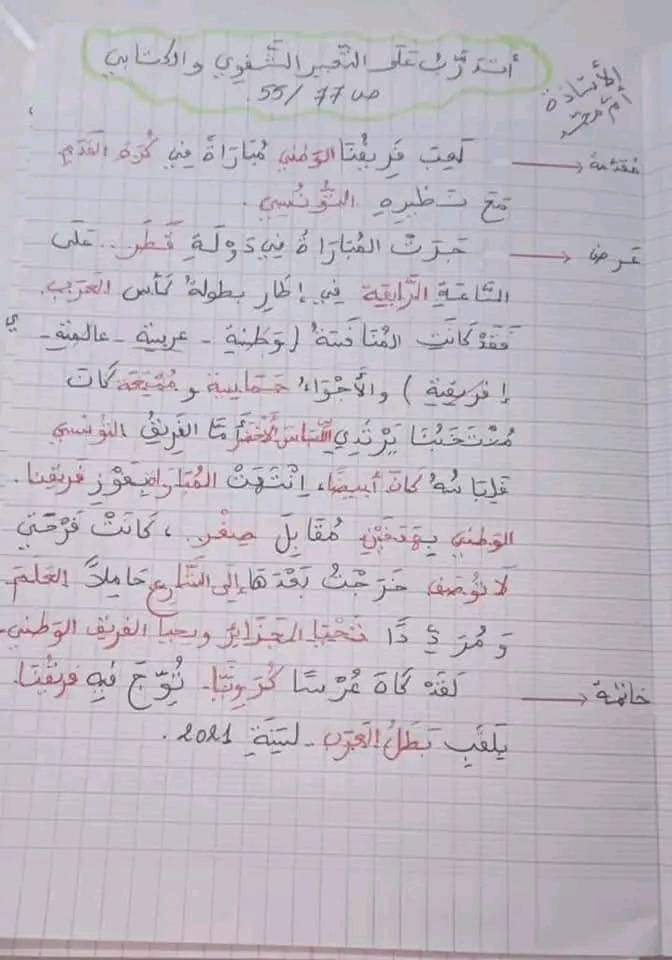 أتدرّب على التعبير الشفوي والكتابي
ص 77 / 55
الأستاذة
أم محمد
مقدمة → لَعِبَ فَرِيقُنَا الوَطَنِي مُبَارَاةً فِي كُرَةِ القَدَمِ
مَعَ نَظِيرِهِ التُّونُسِي.
عرض → جَرَتْ المُبَارَاةُ فِي دَوْلَةِ قَطَر.. عَلَى
السَّاعَةِ الرَّابِعَةِ فِي إطَارِ بطولة كَأس العَرَب.
فَقَدْ كَانَت المُنَافَسَةُ (وَطَنِيَة - عربية - عالمية -
إفريقية) والأَجْوَاءُ حَمَاسِية و مُمْتِعَة كَانَ
مُنْتَخَبُنَا يَرْتَدِي اللِّبَاسَ الأَخْضَر أَمَّا الفَرِيقُ التونسي
فَلِبَاسُهُ كَانَ أَبيضًا، اِنْتَهَتْ المُبَارَاة بِفَوْزِ فَرِيقِنا.
الوَطَنِي بِهَدَفَيْنِ مُقَابِلَ صِفْر.، كَانَتْ فَرْحَتِي
لَا تُوصَف خَرَجْتُ بَعْدَهَا إلى الشَّارِع حَامِلاً العَلَم
وَ مُرَدِّدًا تَحْيَا الجَزَائِر ويحيا الفريق الوطني.
خاتمة → لَقَدْ كَانَ عُرْسًا كُرَوِيًّا. تُوِّجَ فِيهِ فَرِيقُنَا.
بِلَقَبِ بَطَلُ العَرَب - لسَنَةِ 2021.